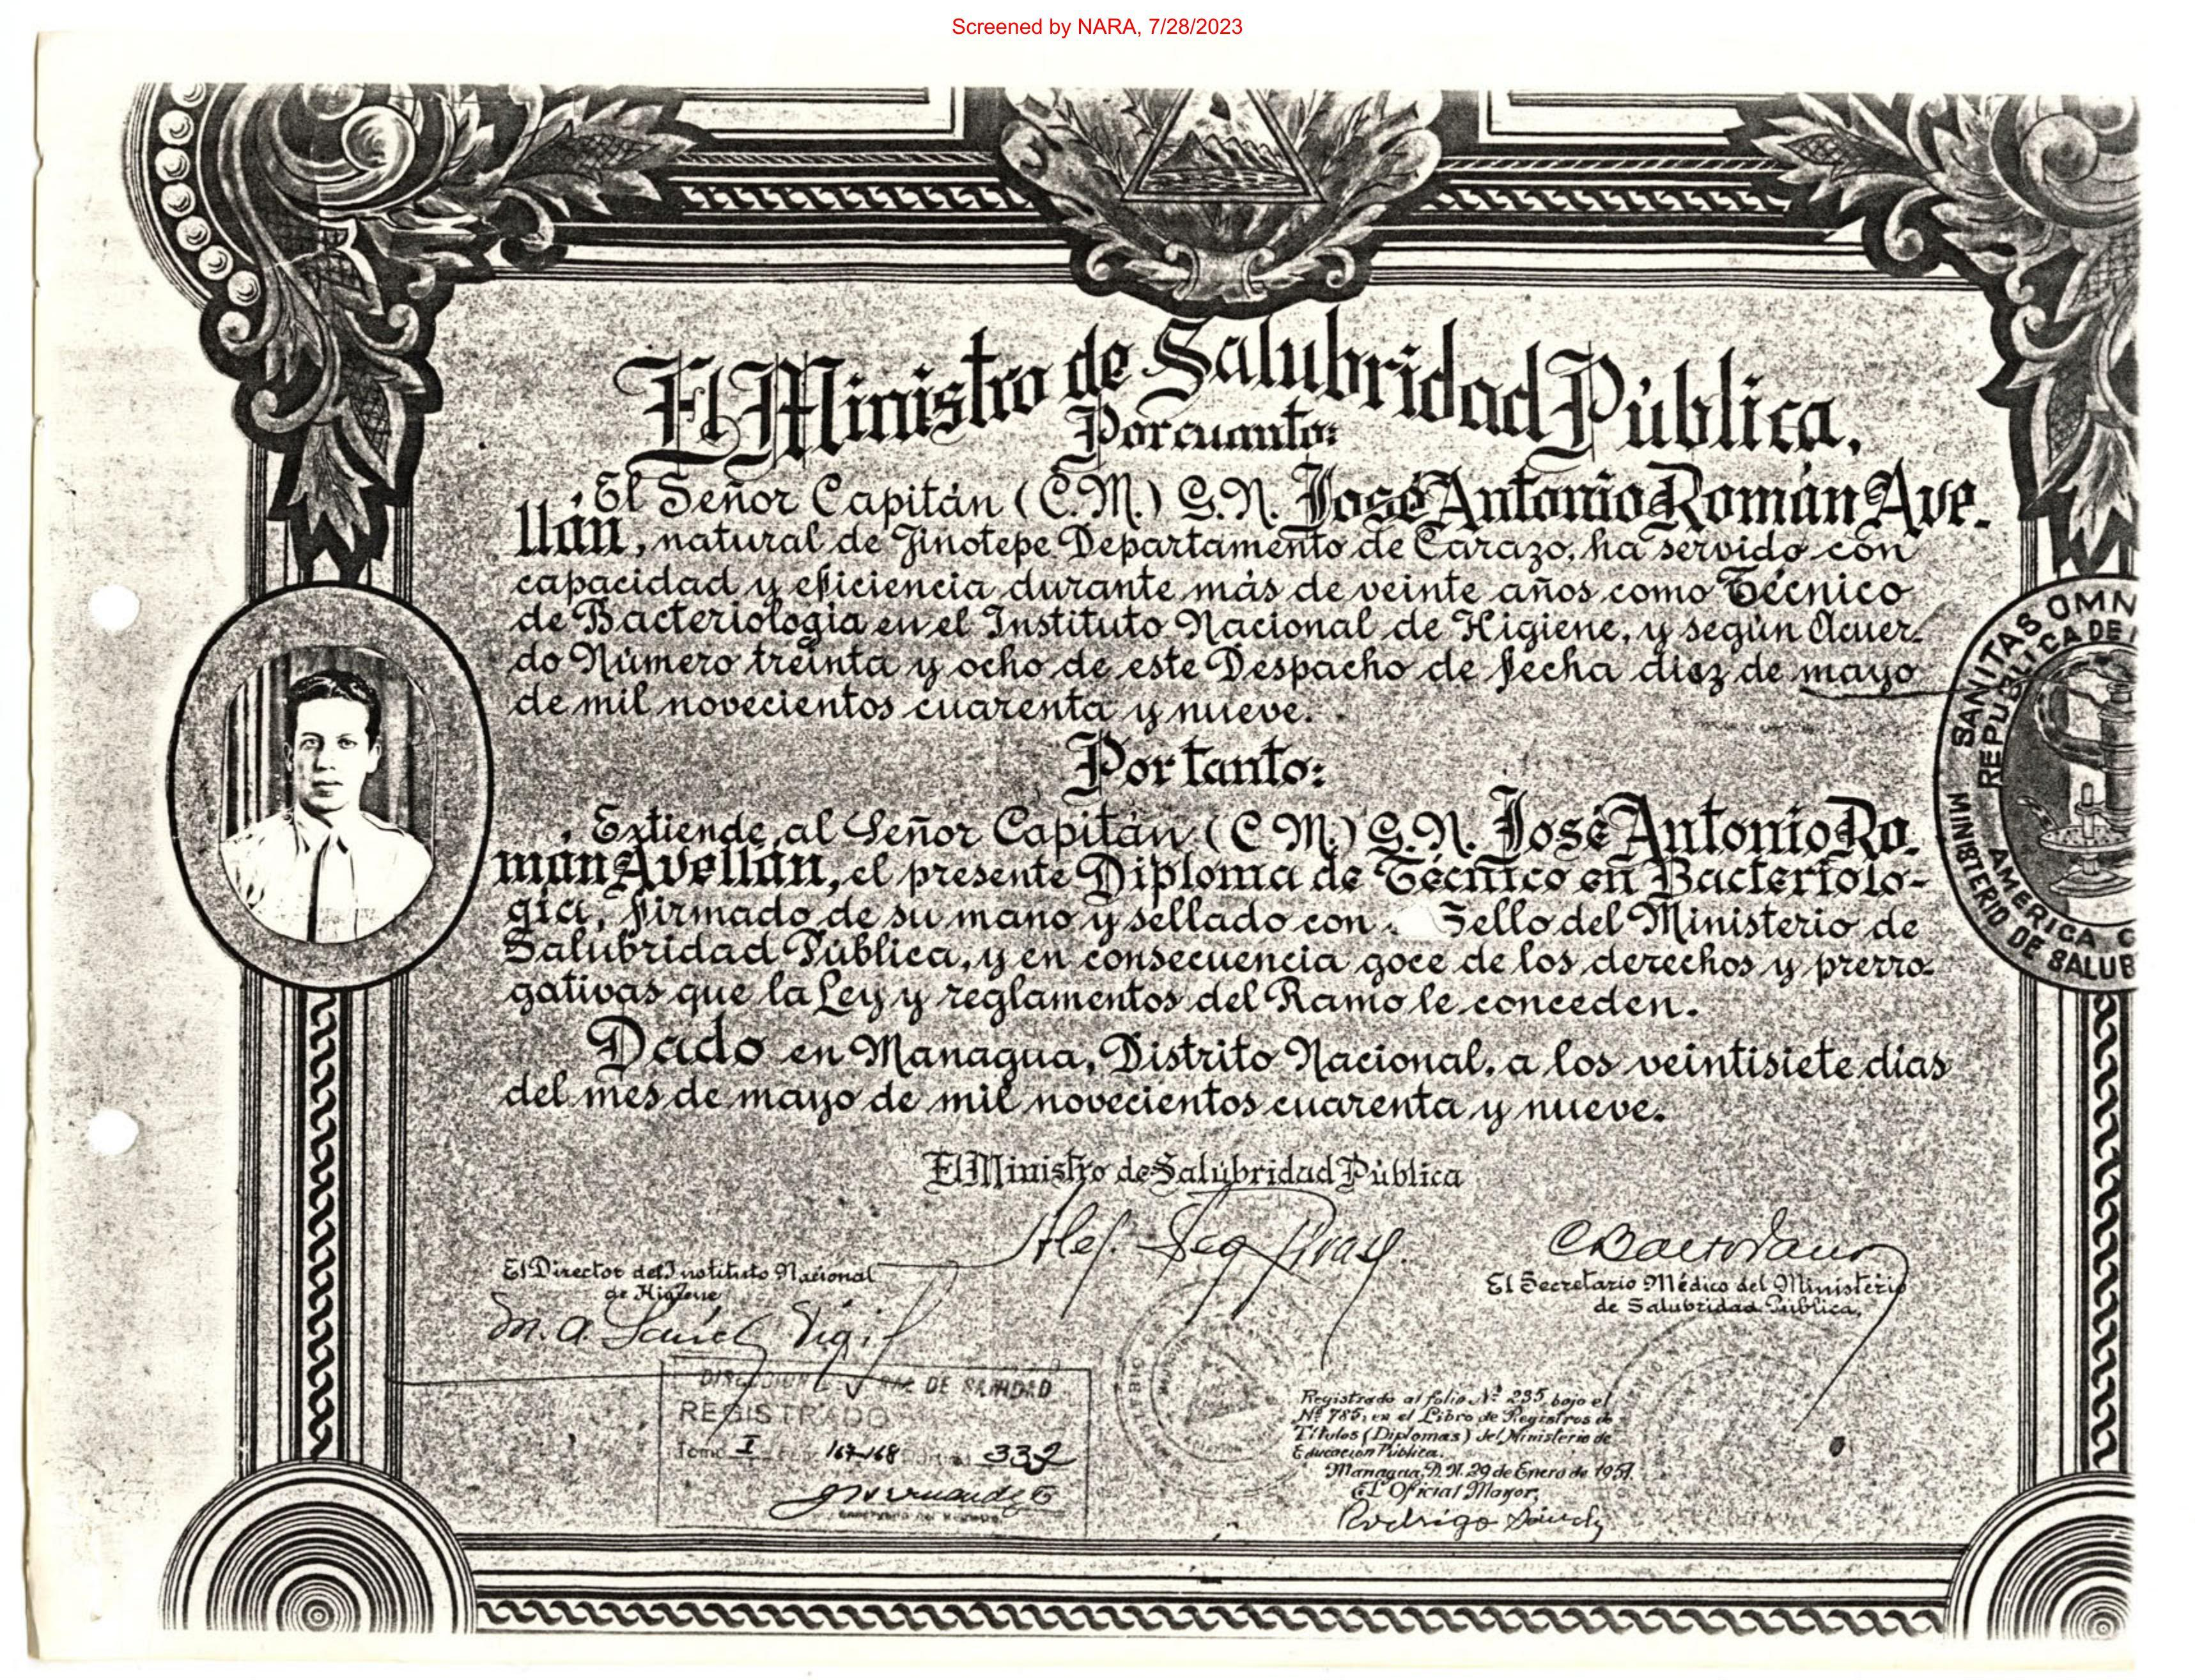 Screened by NARA, 7/28/2023
El Ministro de Salubridad Pública,
Por cuanto:
El Señor Capitán (C.M.) G.N. José Antonio Román Ave-
llán, natural de Jinotepe Departamento de Carazo, ha servido con
capacidad y eficiencia durante más de veinte años como Técnico
de Bacteriología en el Instituto Nacional de Higiene, y según Acuer-
do Número treinta y ocho de este Despacho de fecha diez de mayo
de mil novecientos cuarenta y nueve.
Por tanto:
Extiende al Señor Capitán (C.M.) G.N. José Antonio Ro-
mán Avellán, el presente Diploma de Técnico en Bacteriolo-
gía, firmado de su mano y sellado con Sello del Ministerio de
Salubridad Pública, y en consecuencia goce de los derechos y prerro-
gativas que la Ley y reglamentos del Ramo le conceden.
Dado en Managua, Distrito Nacional, a los veintisiete días
del mes de mayo de mil novecientos cuarenta y nueve.
El Ministro de Salubridad Pública
El Director del Instituto Nacional
de Higiene
M. A. Vigil
El Secretario Médico del Ministerio
de Salubridad Pública,
DE SANIDAD
REGISTRADO
Tomo I 167-168 332
Registrado al folio Nº 235, bajo el
Nº 785, en el Libro de Registros de
Títulos (Diplomas) del Ministerio de
Educación Pública.
Managua, D. N. 29 de Enero de 1951.
El Oficial Mayor,
Rodrigo
SANITAS OMN
REPUBLICA DE
AMERICA C
MINISTERIO DE SALUB